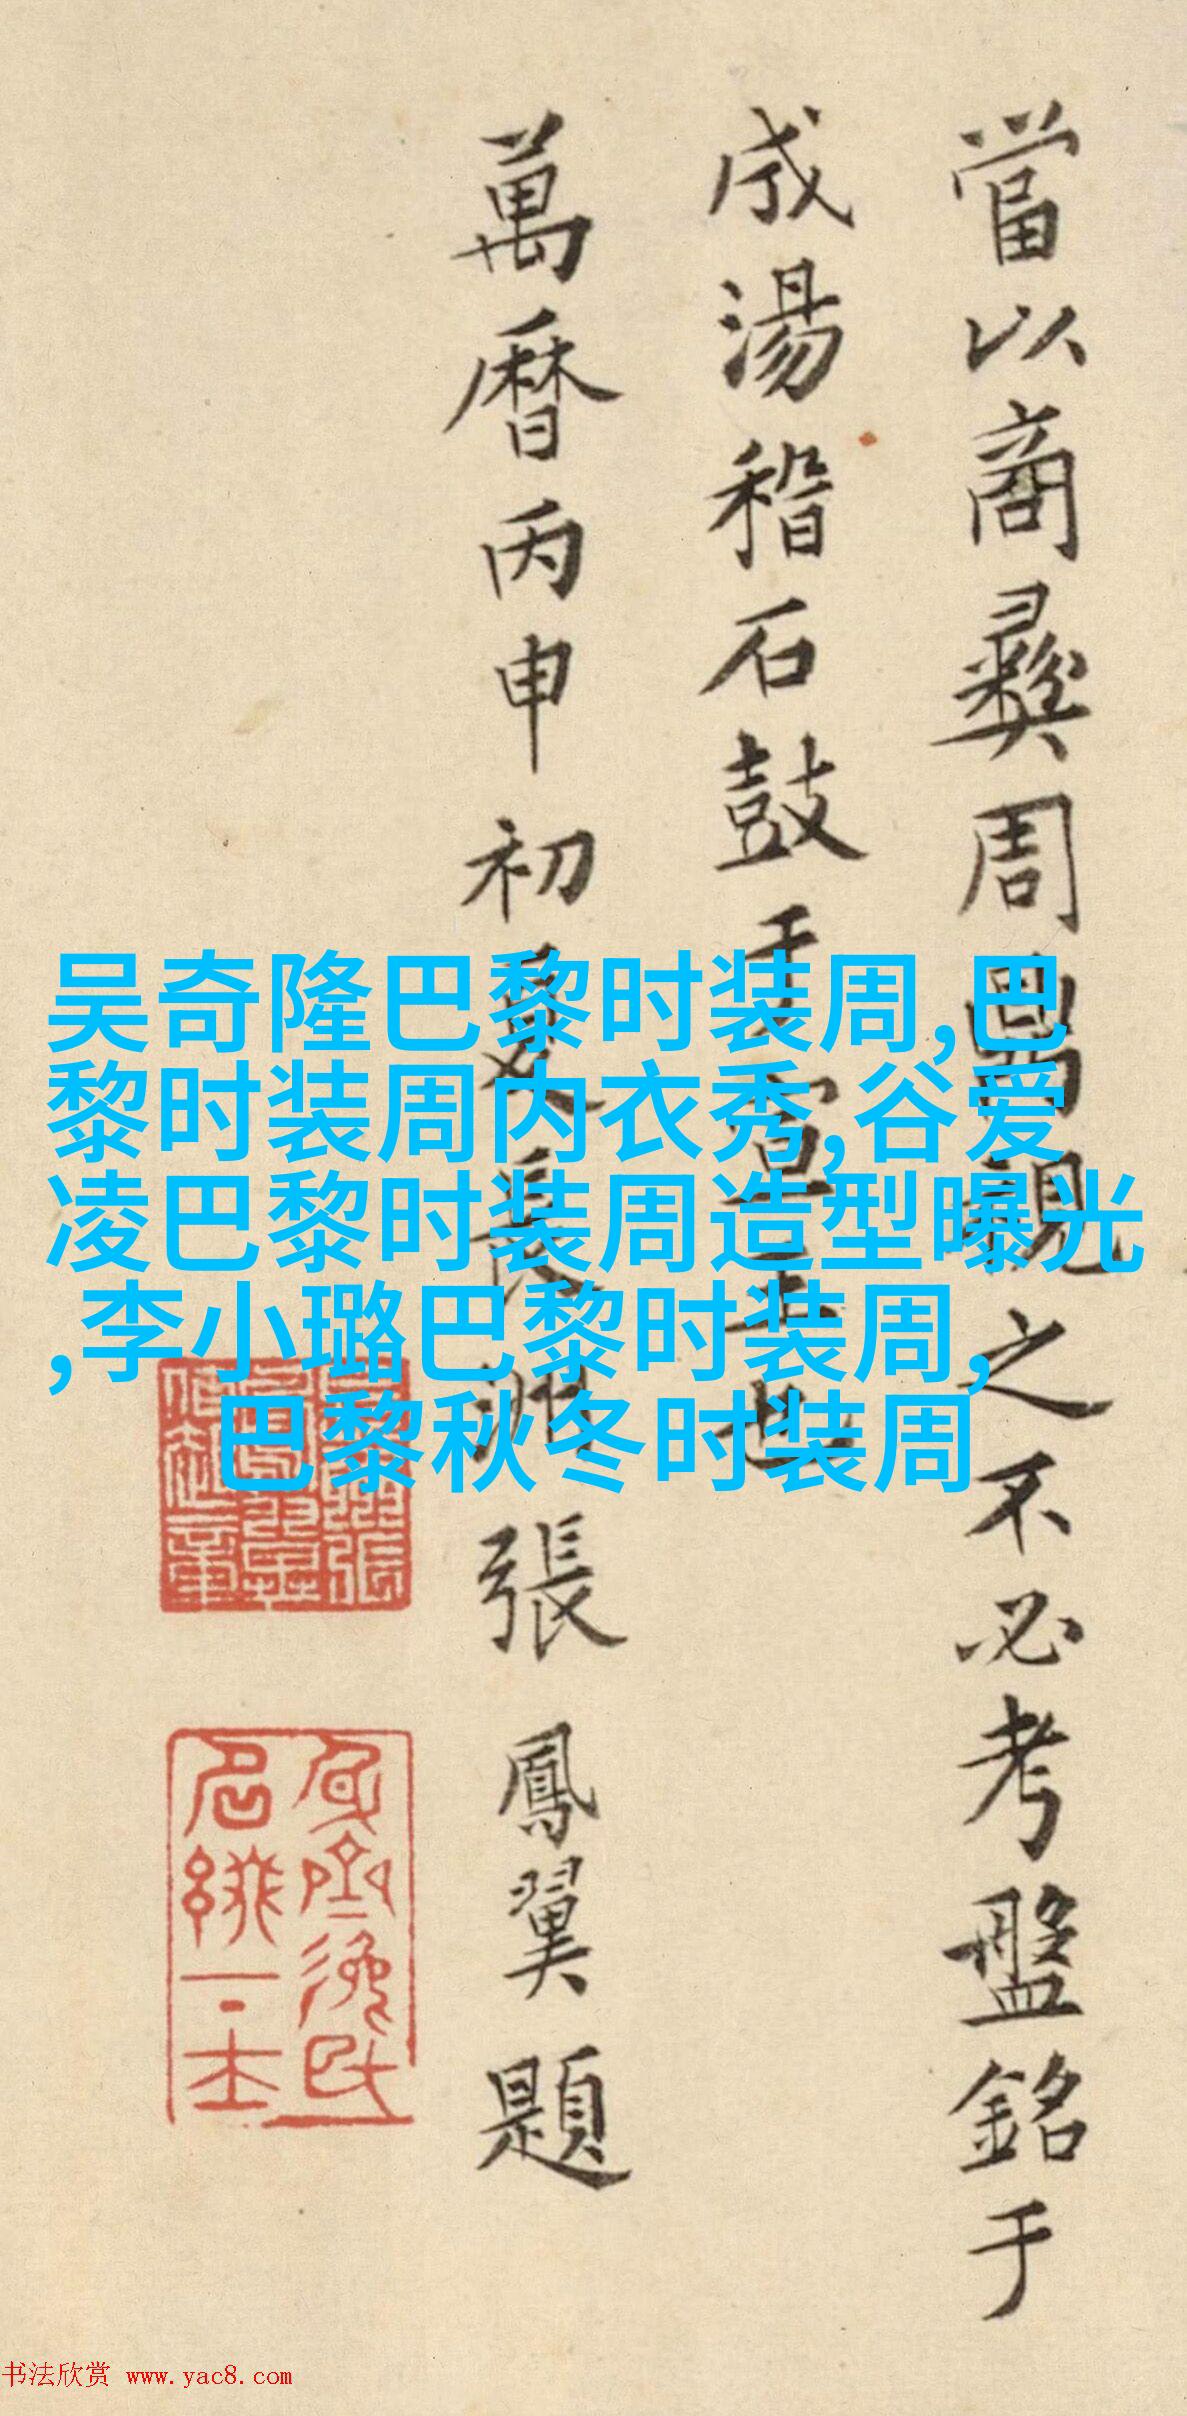 當以商彝周鼎視之不必考盤銘于
成湯稽石鼓于宣王也
萬曆丙申初夏長洲張鳳翼題
吴奇隆巴黎时装周,巴
黎时装周内衣秀,谷爱
凌巴黎时装周造型曝光
,李小璐巴黎时装周,
巴黎秋冬时装周
书法欣赏 www.yac8.com